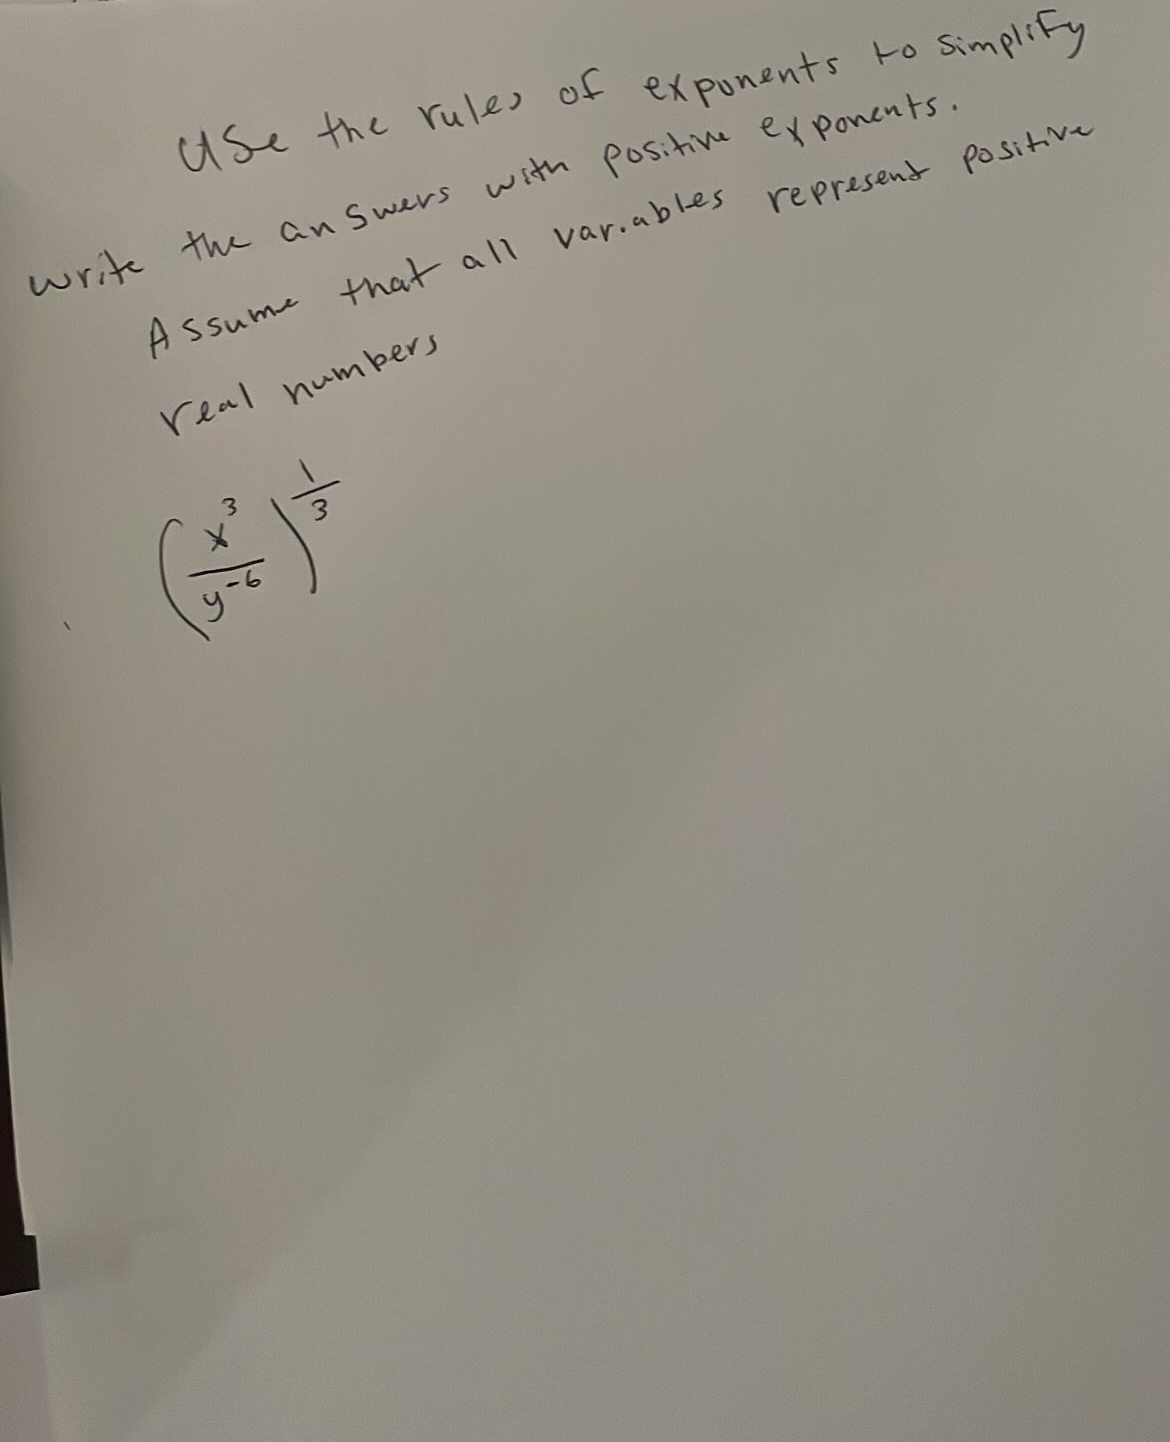 Use the rules of exponents to simplify
write the answers with positive exponents.
Assume that all variables represent positive
real numbers
(x^3/y^-6)^1/3